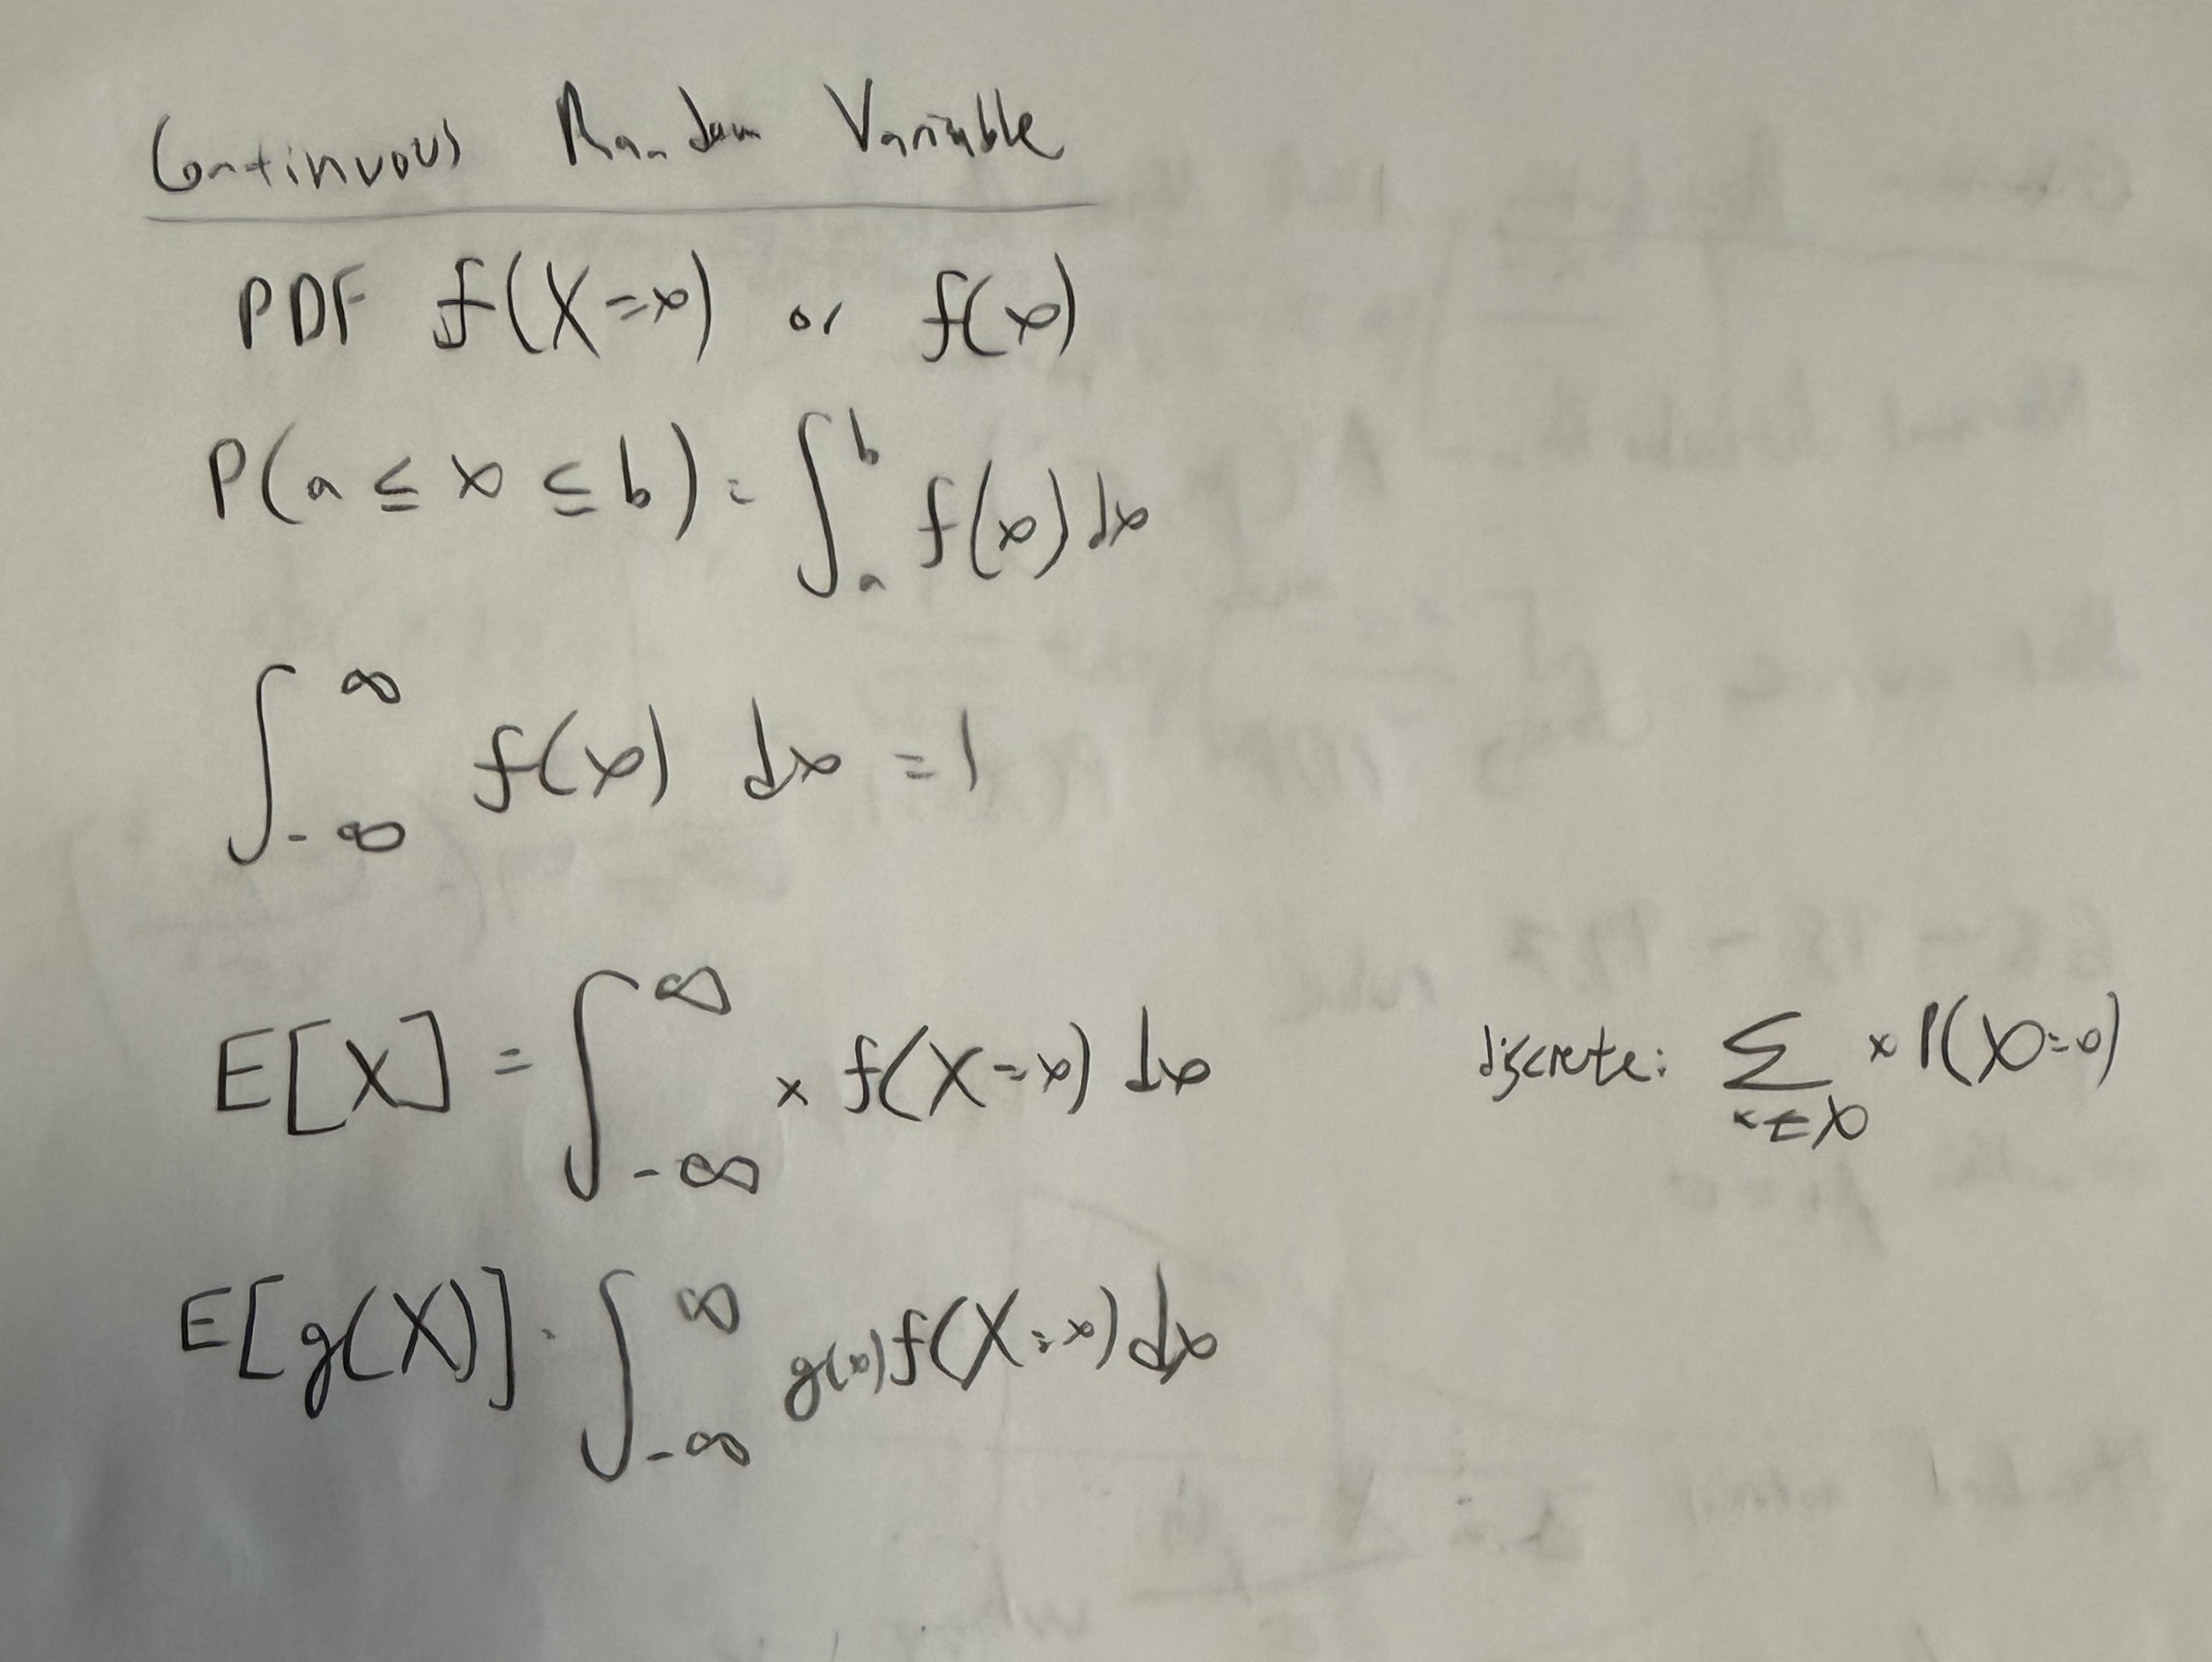 Continuous Random Variable
PDF f(X=x) or f(x)
P(a ≤ x ≤ b) = ∫_a^b f(x) dx
∫_{-∞}^{∞} f(x) dx = 1
E[X] = ∫_{-∞}^{∞} x f(X=x) dx discrete: Σ_{x∈X} x P(X=x)
E[g(X)] = ∫_{-∞}^{∞} g(x) f(X=x) dx